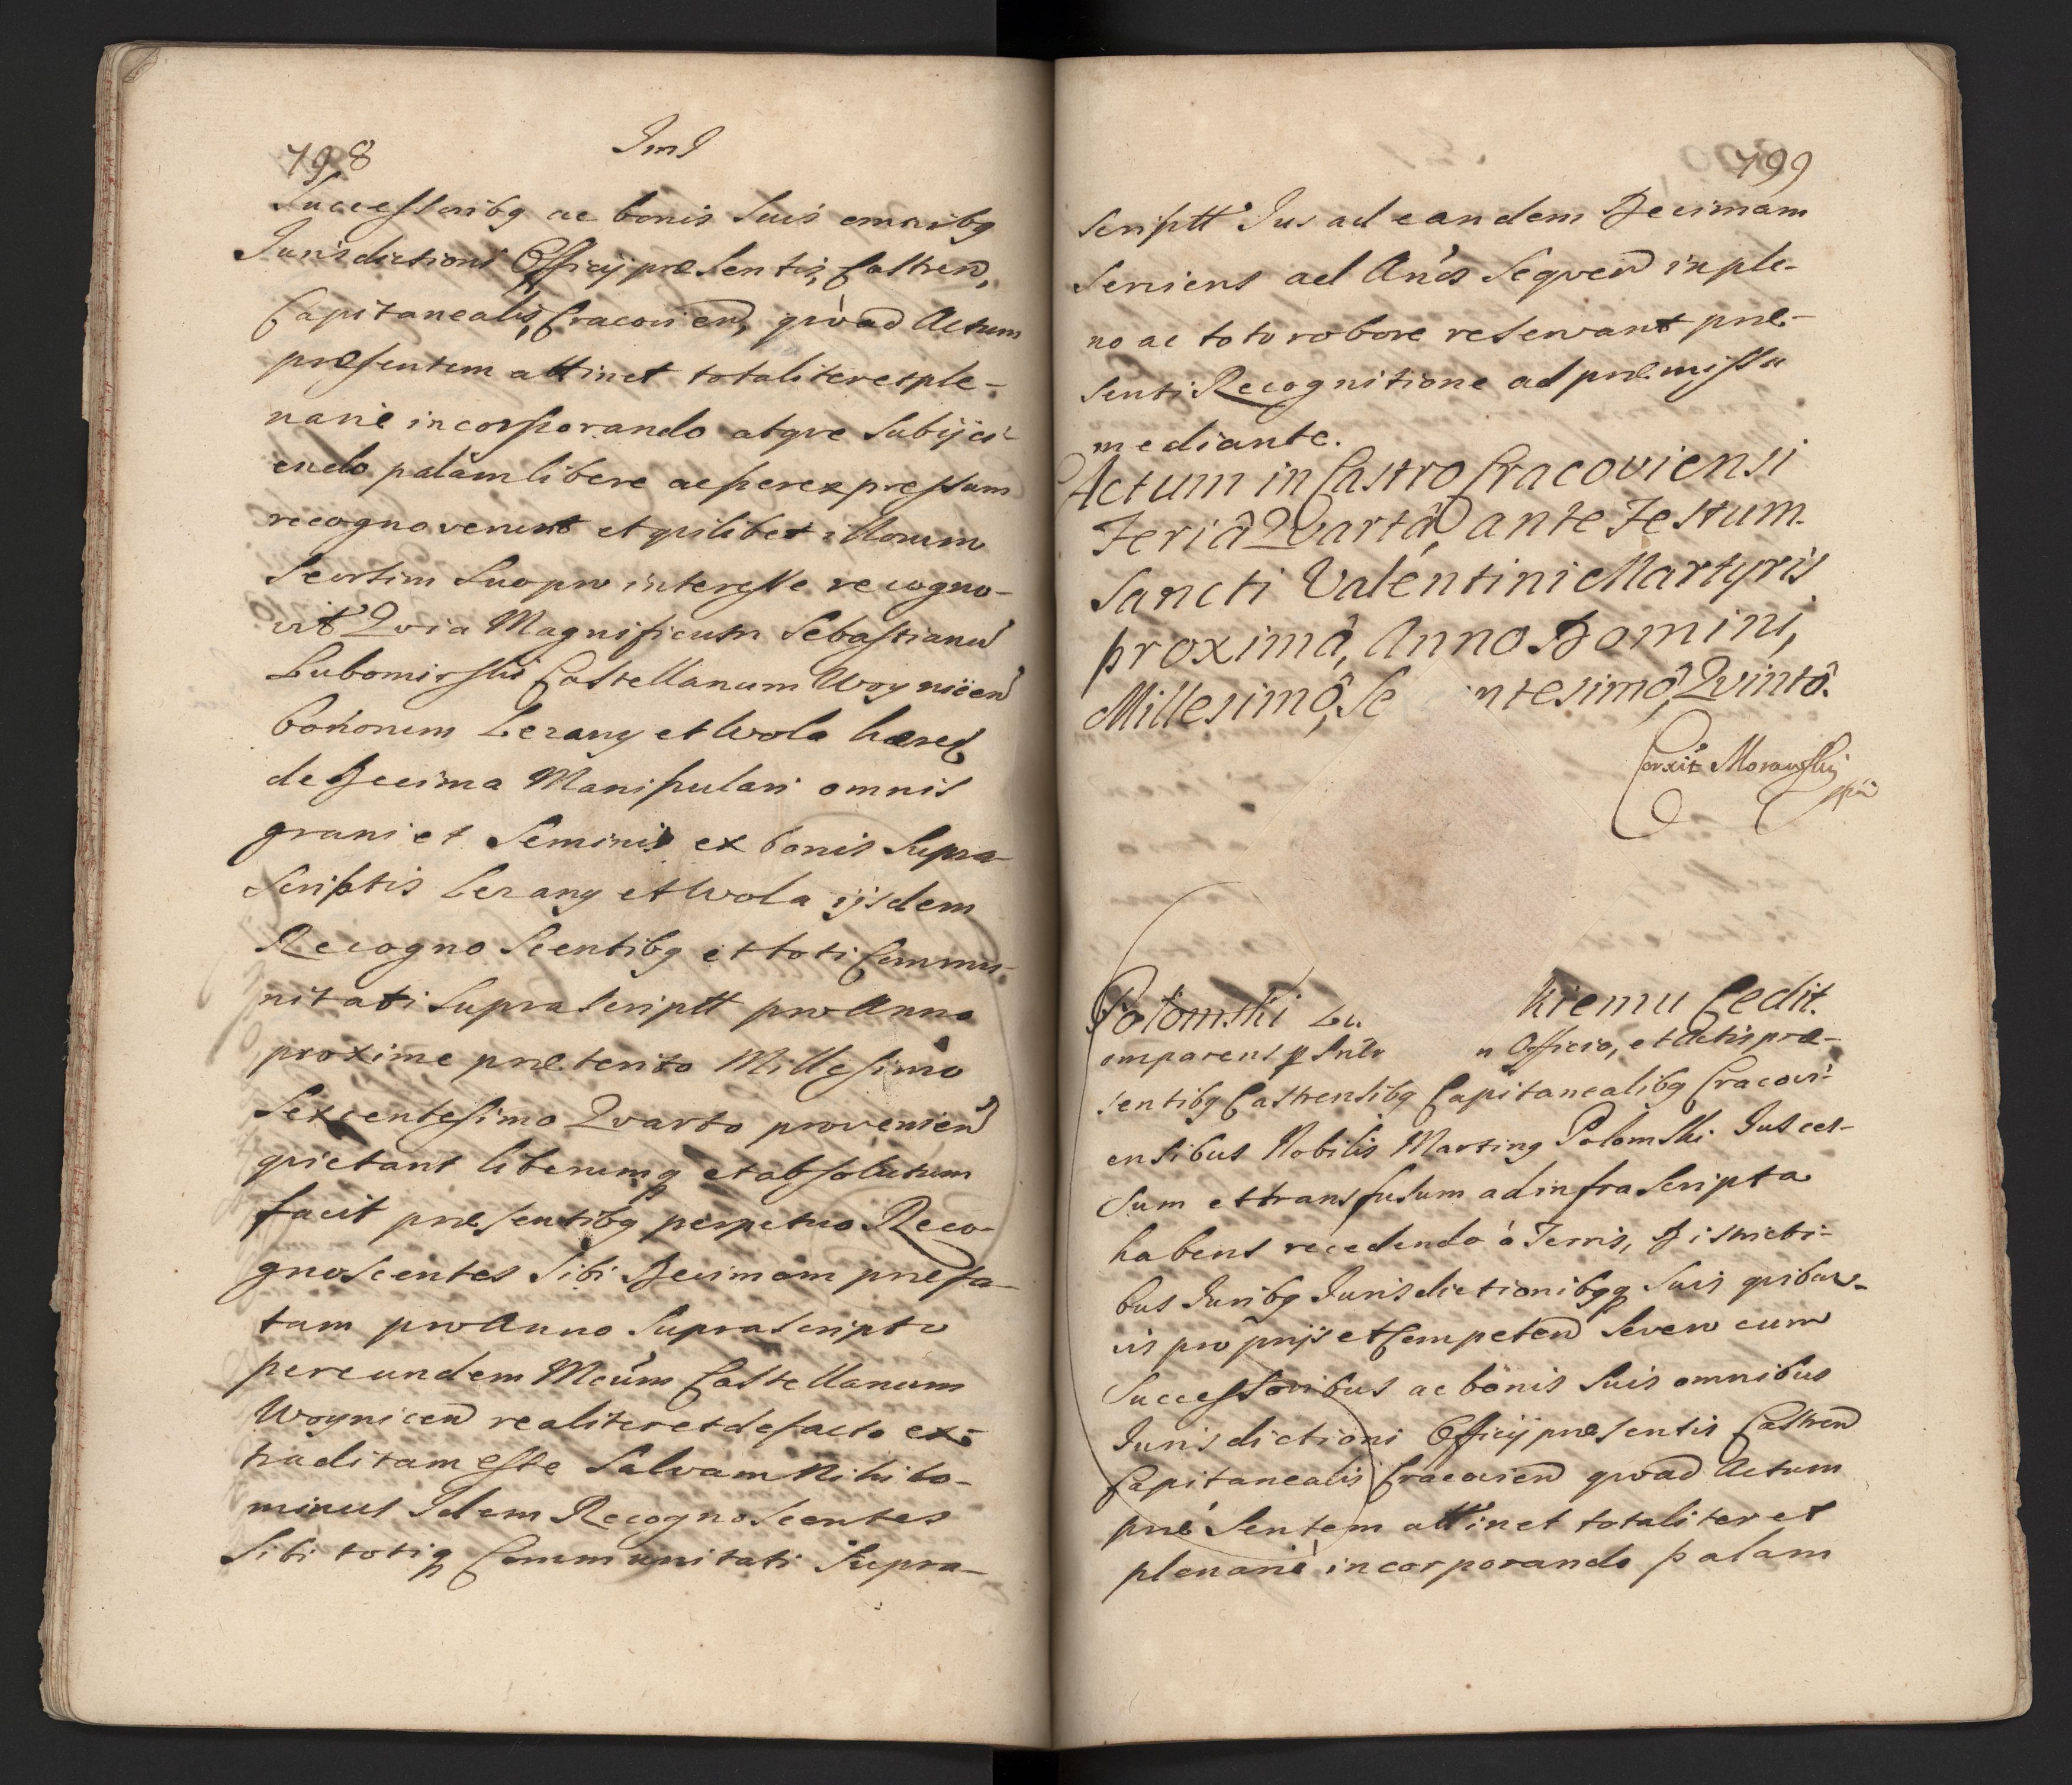 798
Successoribq ac bonis suis omnibq
Jurisdictioni Officij præsentis, Castren,
Capitanealis, Cracovien, qvoad Actum
præsentem attinet totaliter et ple-
narie incorporando atqve subijci-
endo palàm libere ac per expressum
recognoverunt et qvilibet illorum
seorsim suo pro interesse recogno-
vit Qvia Magnificum Sebastianu
Lubomirski Castellanum Woynicen
bonorum Lezany et Wola hæred
de Decima Manipulari omnis
grani et seminis ex bonis supra-
scriptis Lezany et Wola ijsdem
Recognoscentibq et toti Commu-
nitati suprascriptt pro Anno
proxime præterito Millesimo
Sexcentesimo Qvarto provenien
qvietant liberumq et absolutum
facit præsentibq perpetuo Reco-
gnoscentes sibi Decimam præfa-
tam pro Anno suprascripto
per eundem Mcum Castellanum
Woynicen realiter et de facto ex-
traditam esse Salvam Nihilo-
minus Idem Recognoscentes
sibi totiq Communitati supra-
799
scriptt Jus ad eandem Decimam
serviens ad Anos seqven in ple-
no ac toto robore reservant præ-
senti Recognitione ad præmissa
mediante.
Actum in Castro Cracoviensi
Feriâ Qvartâ, ante Festum
Sancti Valentini Martyris
proximâ, Anno Domini,
Millesimô, Se ntesimô, Qvintô.
Corxit Morawski
mpp
Potomski Lu kiemu Cedit.
omparens p n Officio, et Actis præ-
sentibq Castrensibq Capitanealibq Cracovi-
ensibus Nobilis Martinq Polomski Jus ces-
sum et transfusum ad infrascripta
habens recedendo à Terris, Districti-
bus Juribq Jurisdictionibqq suis qvibus-
vis proprijs et Competen seven cum
Successoribus ac bonis suis omnibus
Jurisdictioni Officij præsentis Castren
Capitanealis Cracovien qvoad Actum
præsentem attinet totaliter et
plenariè incorporando palam